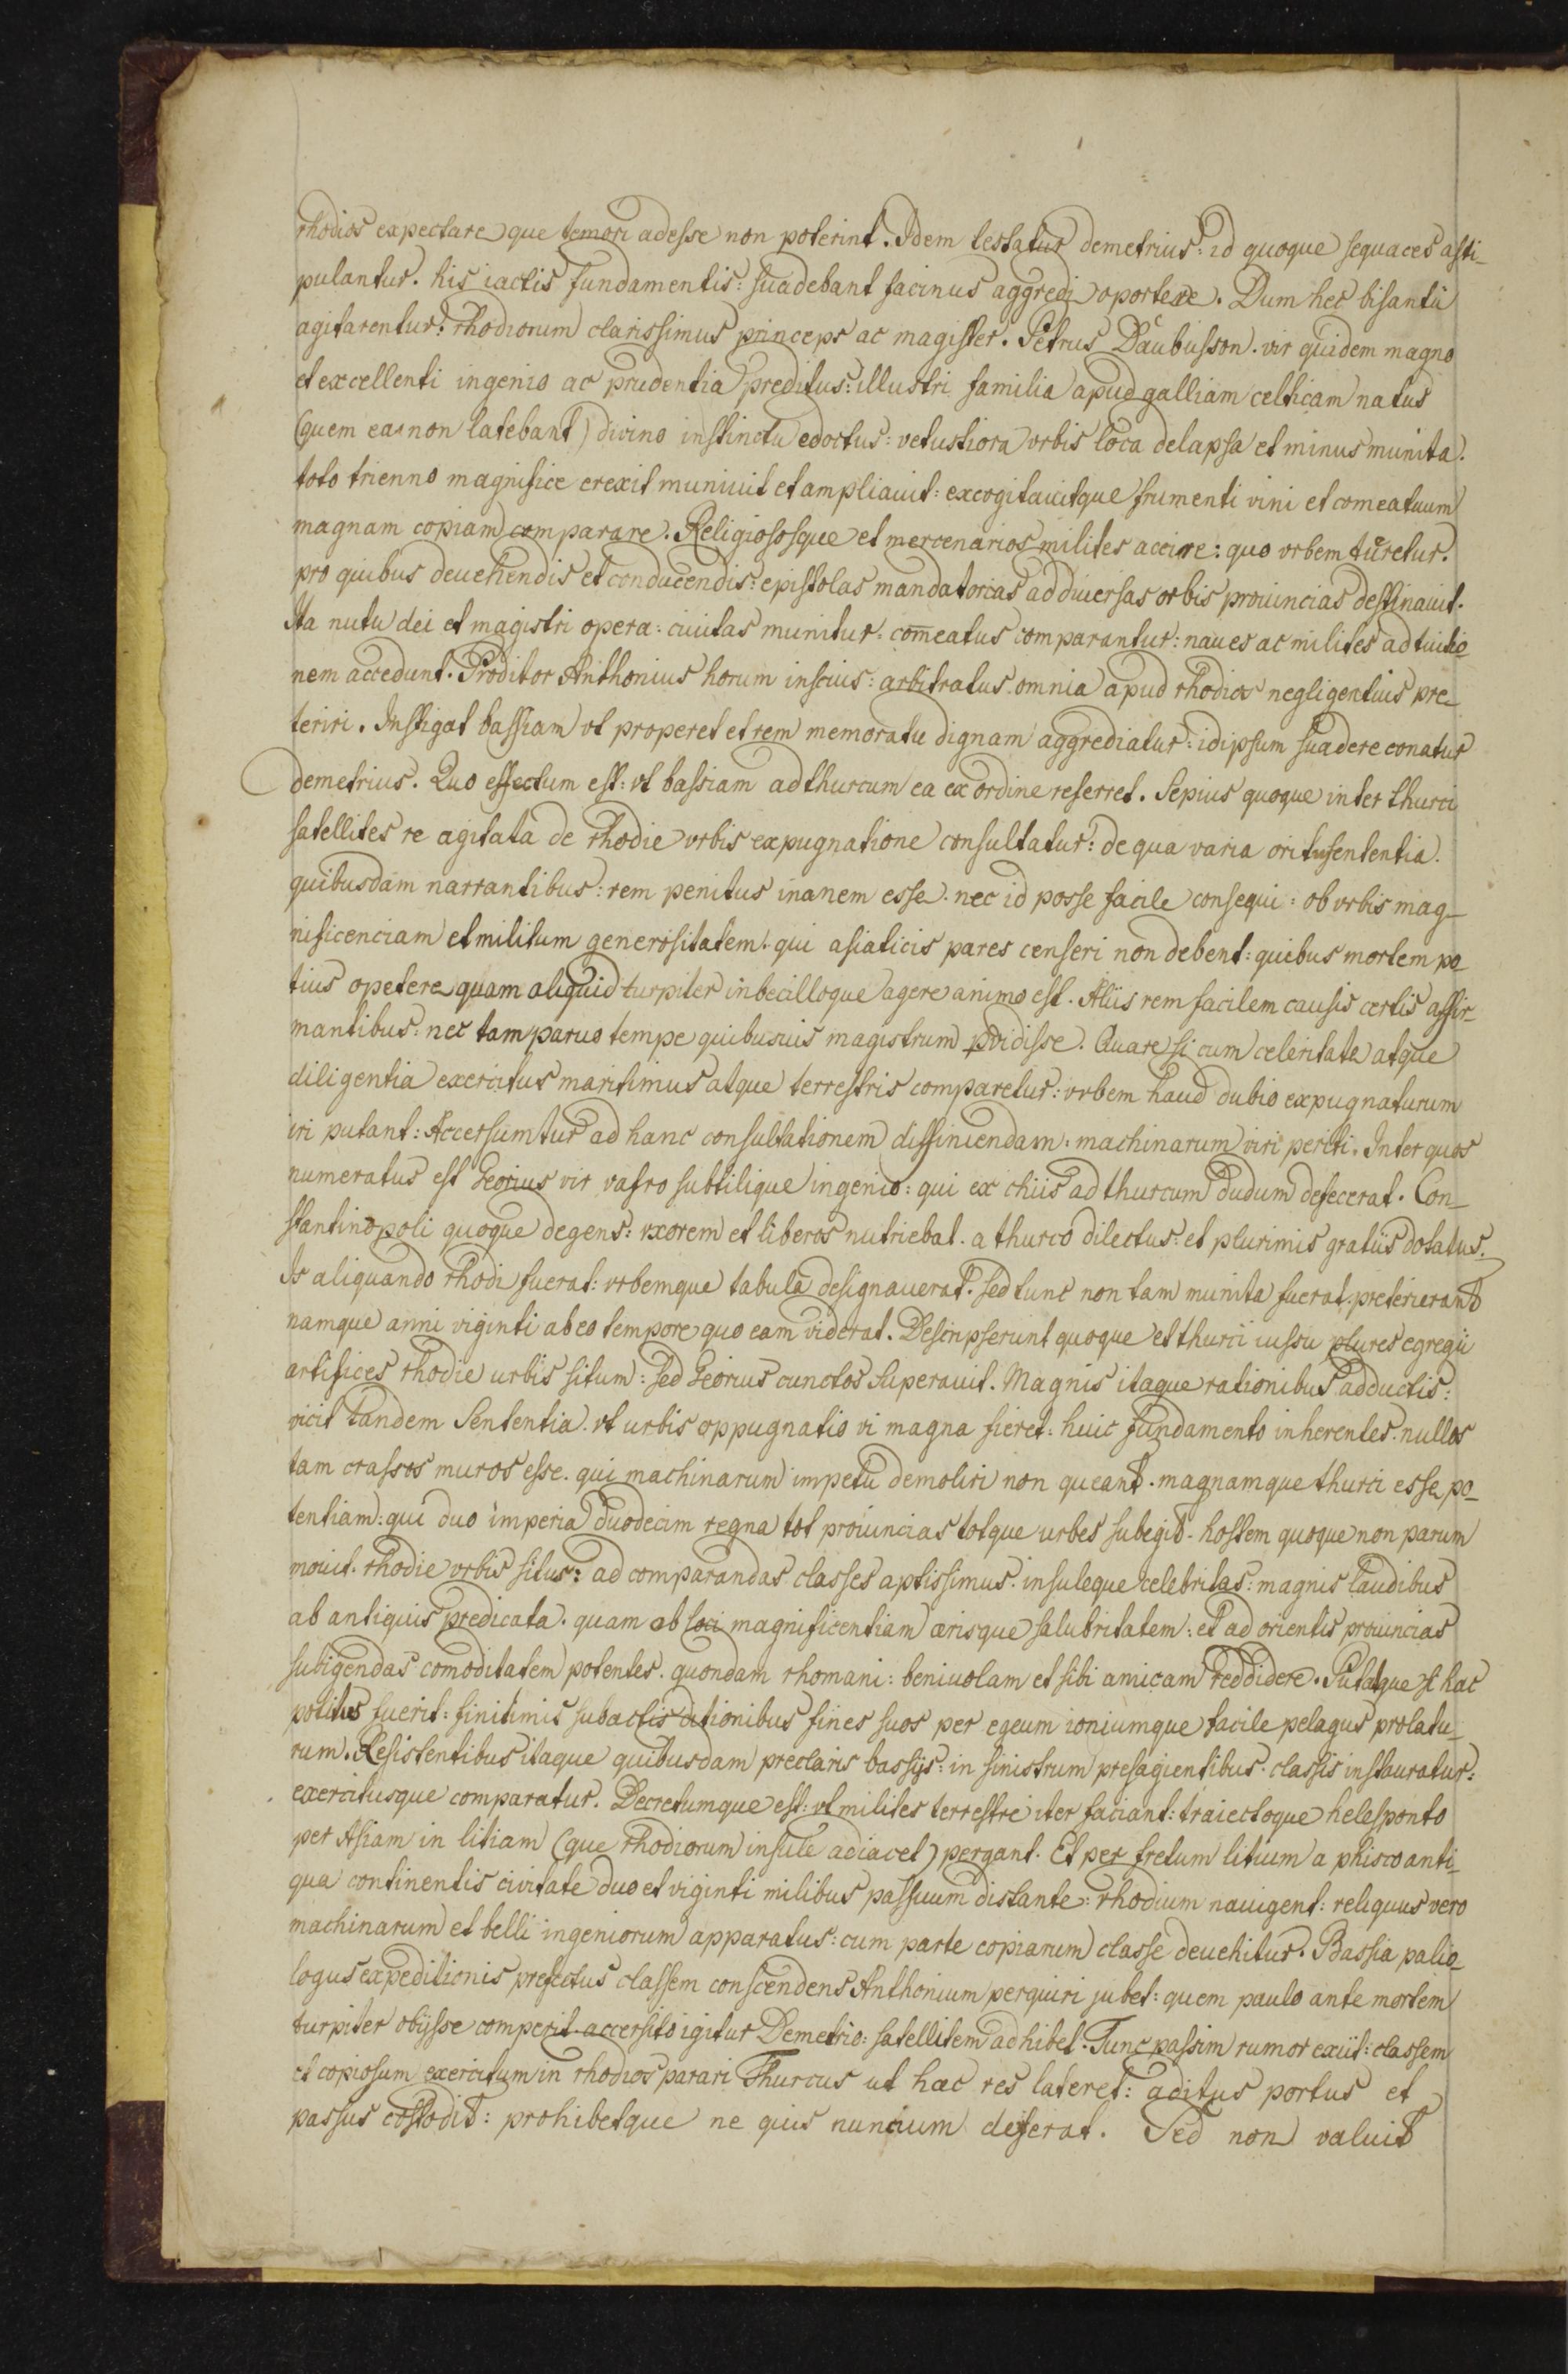 rhodios expectare que temori adesse non poterint. Idem testatur demetrius: id quoque sequaces asti-
pulantur. his iactis fundamentis: suadebant facinus aggredi oportere. Dum hec bisantii
agitarentur: rhodiorum clarissimus princeps ac magister. Petrus Daubusson. vir quidem magno
et excellenti ingenio ac prudentia preditus: illustri familia apud galliam celticam natus
(quem ea non latebant) divino instinctu edoctus: vetustiora vrbis loca delapsa et minus munita.
toto trienno magnifice erexit muniuit et ampliauit: excogitauitque frumenti vini et comeatuum
magnam copiam comparare. Religiososque et mercenarios milites accire: quo vrbem turetur.
pro quibus deuehendis et conducendis: epistolas mandatorias ad diuersas orbis prouincias destinauit.
Ita nutu dei et magistri opera: ciuitas munitur: comeatus comparantur: naues ac milites ad tuitio-
nem accedunt. Proditor Anthonius horum inscius: arbitratus omnia apud rhodios negligentius pre-
teriri. Instigat bassiam vt properet et rem memoratu dignam aggrediatur: idipsum suadere conatur
demetrius. Quo effectum est: vt bassiam ad thurcum ea ex ordine referret. Sepius quoque inter thurci
satellites re agitata de rhodie vrbis expugnatione consultatur: de qua varia oritur sententia.
quibusdam narrantibus: rem penitus inanem esse. nec id posse facile consequi: ob vrbis mag-
nificenciam et militum generositatem. qui asiaticis pares censeri non debent: quibus mortem po-
tius opetere quam aliquid turpiter inbecilloque agere animo est. Aliis rem facilem causis certis affir-
mantibus: nec tam paruo tempe quibusuis magistrum pvidisse. Quare si cum celeritate atque
diligentia exercitus maritimus atque terrestris comparetur: vrbem haud dubio expugnaturum
iri putant: Accersumtur ad hanc consultationem diffiniendam: machinarum viri periti. Inter quos
numeratus est Georius vir vafro subtilique ingenio: qui ex chiis ad thurcum dudum defecerat. Con-
stantinopoli quoque degens: vxorem et liberos nutriebat. a thurco dilectus: et plurimis gratiis dotatus.
Is aliquando rhodi fuerat: vrbemque tabula designauerat. sed tunc non tam munita fuerat. preterierant
namque anni viginti ab eo tempore quo eam viderat. Descripserunt quoque et thurci iussu plures egregii
artifices rhodie urbis situm: sed Georius cunctos superauit. Magnis itaque rationibus adductis:
vicit tandem Sententia. vt urbis oppugnatio vi magna fieret: huic fundamento inherentes. nullos
tam crassos muros esse. qui machinarum impetu demoliri non queant. magnamque thurci esse po-
tentiam: qui duo imperia duodecim regna tot prouincias totque urbes subegit. hostem quoque non parum
mouit. rhodie vrbis situs: ad comparandas classes aptissimus. insuleque celebritas: magnis laudibus
ab antiquis predicata. quam ob loci magnificentiam ærisque salubritatem: et ad orientis prouincias
subigendas comoditatem potentes. quondam rhomani: beniuolam et sibi amicam reddidere. Putatque si hac
potitus fuerit: finitimis subactis ditionibus fines suos per egeum ioniumque facile pelagus prolatu-
rum. Resistentibus itaque quibusdam preclaris bassijs: in sinistrum presagientibus. classis instauratur:
exercitusque comparatur. Decretumque est: vt milites terrestre iter faciant: traiectoque helesponto
per Asiam in litiam (que rhodiorum insule adiacet) pergant. Et per fretum litium a phisco anti-
qua continentis civitate duo et viginti milibus passuum distante: rhodium nauigent: reliquus vero
machinarum et belli ingeniorum apparatus: cum parte copiarum classe deuehitur. Bassia palio-
logus expeditionis prefectus classem conscendens Anthonium perquiri jubet: quem paulo ante mortem
turpiter obijsse comperit. accersito igitur Demetrio: satellitem adhibet. Tunc passim rumor exiit: classem
et copiosum exercitum in rhodios parari Thurcus ut hac res lateret: aditus portus et
passus costodit: prohibetque ne quis nuncium deferat. Sed non valuit